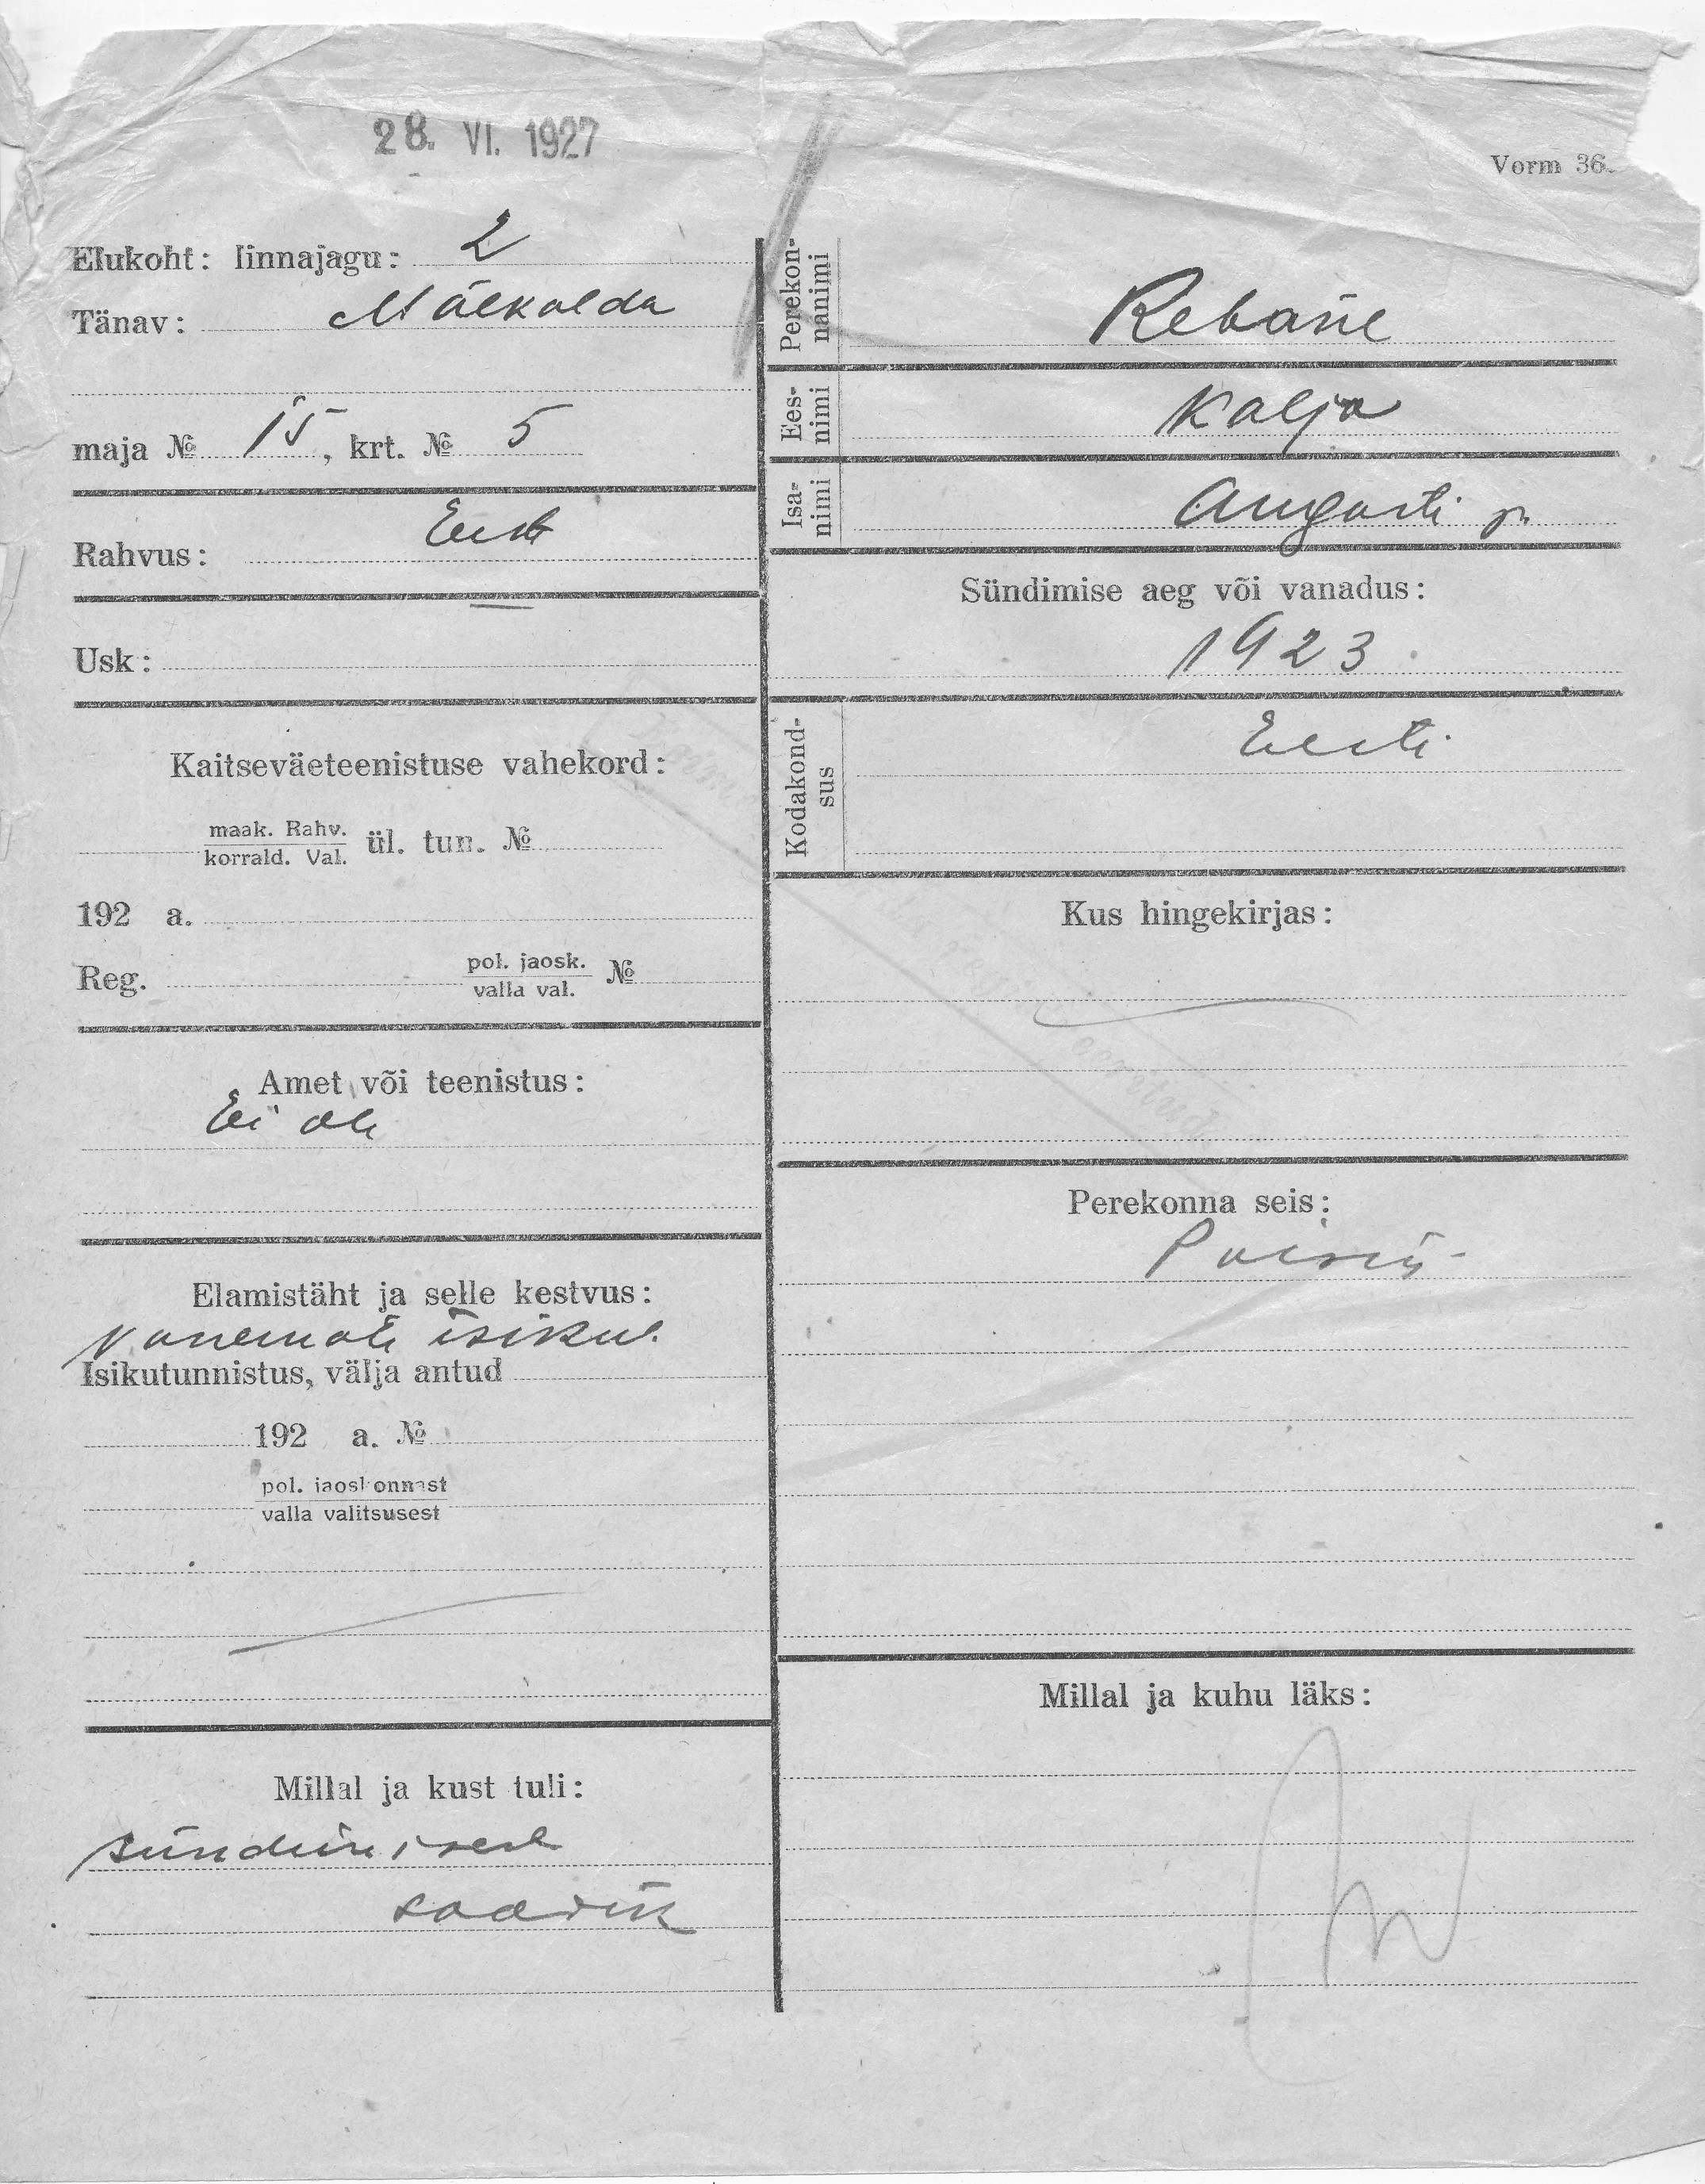 28. VI. 1927
Vorm 36.
Elukoht: linnajagu: 2
Tänav: Mäekalda
maja № 15, krt. № 5
Rahvus: Eest
Usk: —
Kaitseväeteenistuse vahekord:
maak. Rahv.
korrald. Val. ül. tun. №
192 a.
Reg. pol. jaosk.
valla val. №
Amet või teenistus:
Ei ole
Elamistäht ja selle kestvus:
Vanemate isikut.
Isikutunnistus, välja antud
192 a. №
pol. jaoskonnast
valla valitsusest
Millal ja kust tuli:
sündimisest
saadik
Perekon-
nanimi
Rebane
Ees-
nimi
Kalju
Isa-
nimi
Augusti p.
Sündimise aeg või vanadus:
1923
Kodakond-
sus
Eesti
Kus hingekirjas:
Perekonna seis:
Millal ja kuhu läks: